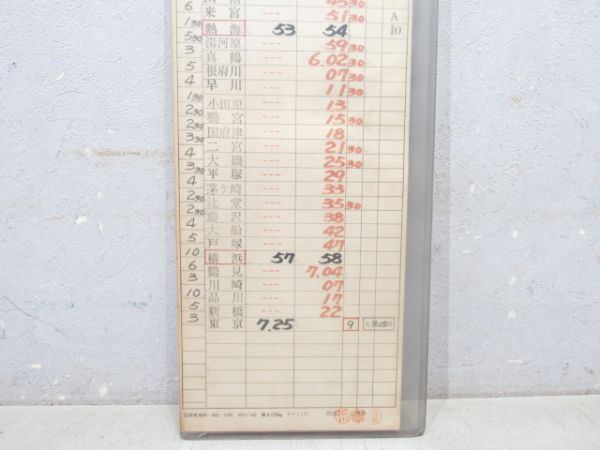 6 45 30
米宮 --- 51 30 A
1 30 熱海 53 54 10
5 30 湯河原 --- 59 30
3 真鶴 --- 6.02 30
5 根府川 --- 07 30
4 早川 --- 11 30
1 30 小田原 --- 13
2 30 鴨宮 --- 15 30
2 30 国府津 --- 18
3 30 二宮 --- 21 30
4 大磯 --- 25 30
3 30 平塚 --- 29
4 茅ケ崎 --- 33
2 30 辻堂 --- 35 30
2 30 藤沢 --- 38
4 大船 --- 42
5 戸塚 --- 47
10 横浜 57 58
6 鶴見 --- 7.04
3 川崎 --- 07
10 品川 --- 17
5 新橋 --- 22
3 東京 7.25 9